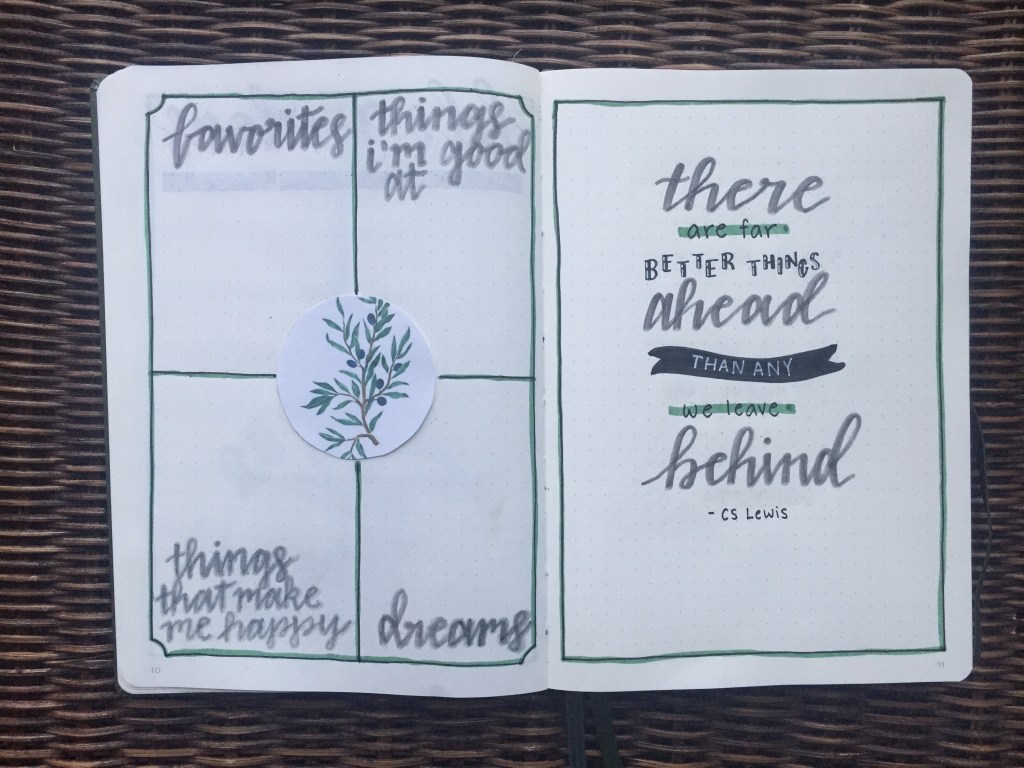 favorites
things
i'm good
at
things
that make
me happy
dreams
10
there
are far
BETTER THINGS
ahead
THAN ANY
we leave
behind
- CS Lewis
11